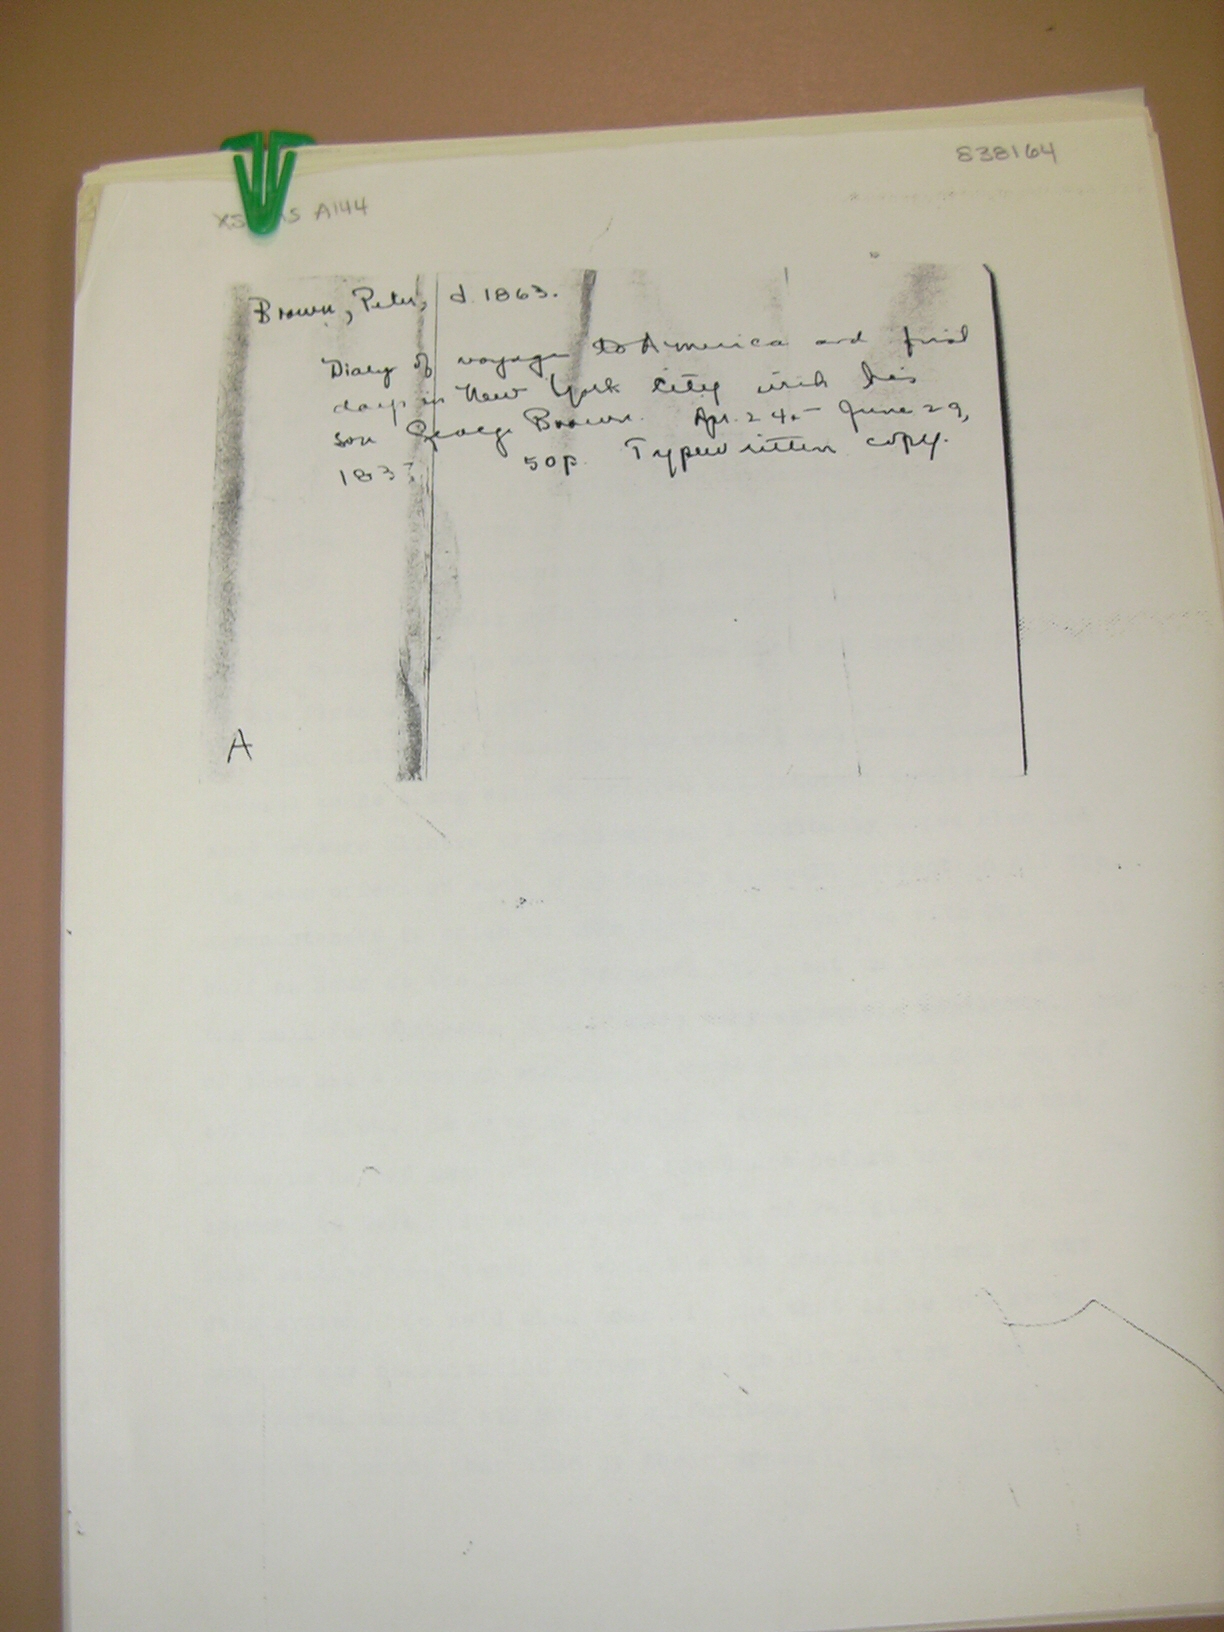 838164
A144
Brown, Peter, d. 1863.
Diary of voyage to America and first
days in New York City with his
son George Brown. Apr. 24.- June 29,
50p. Typewritten copy.
A